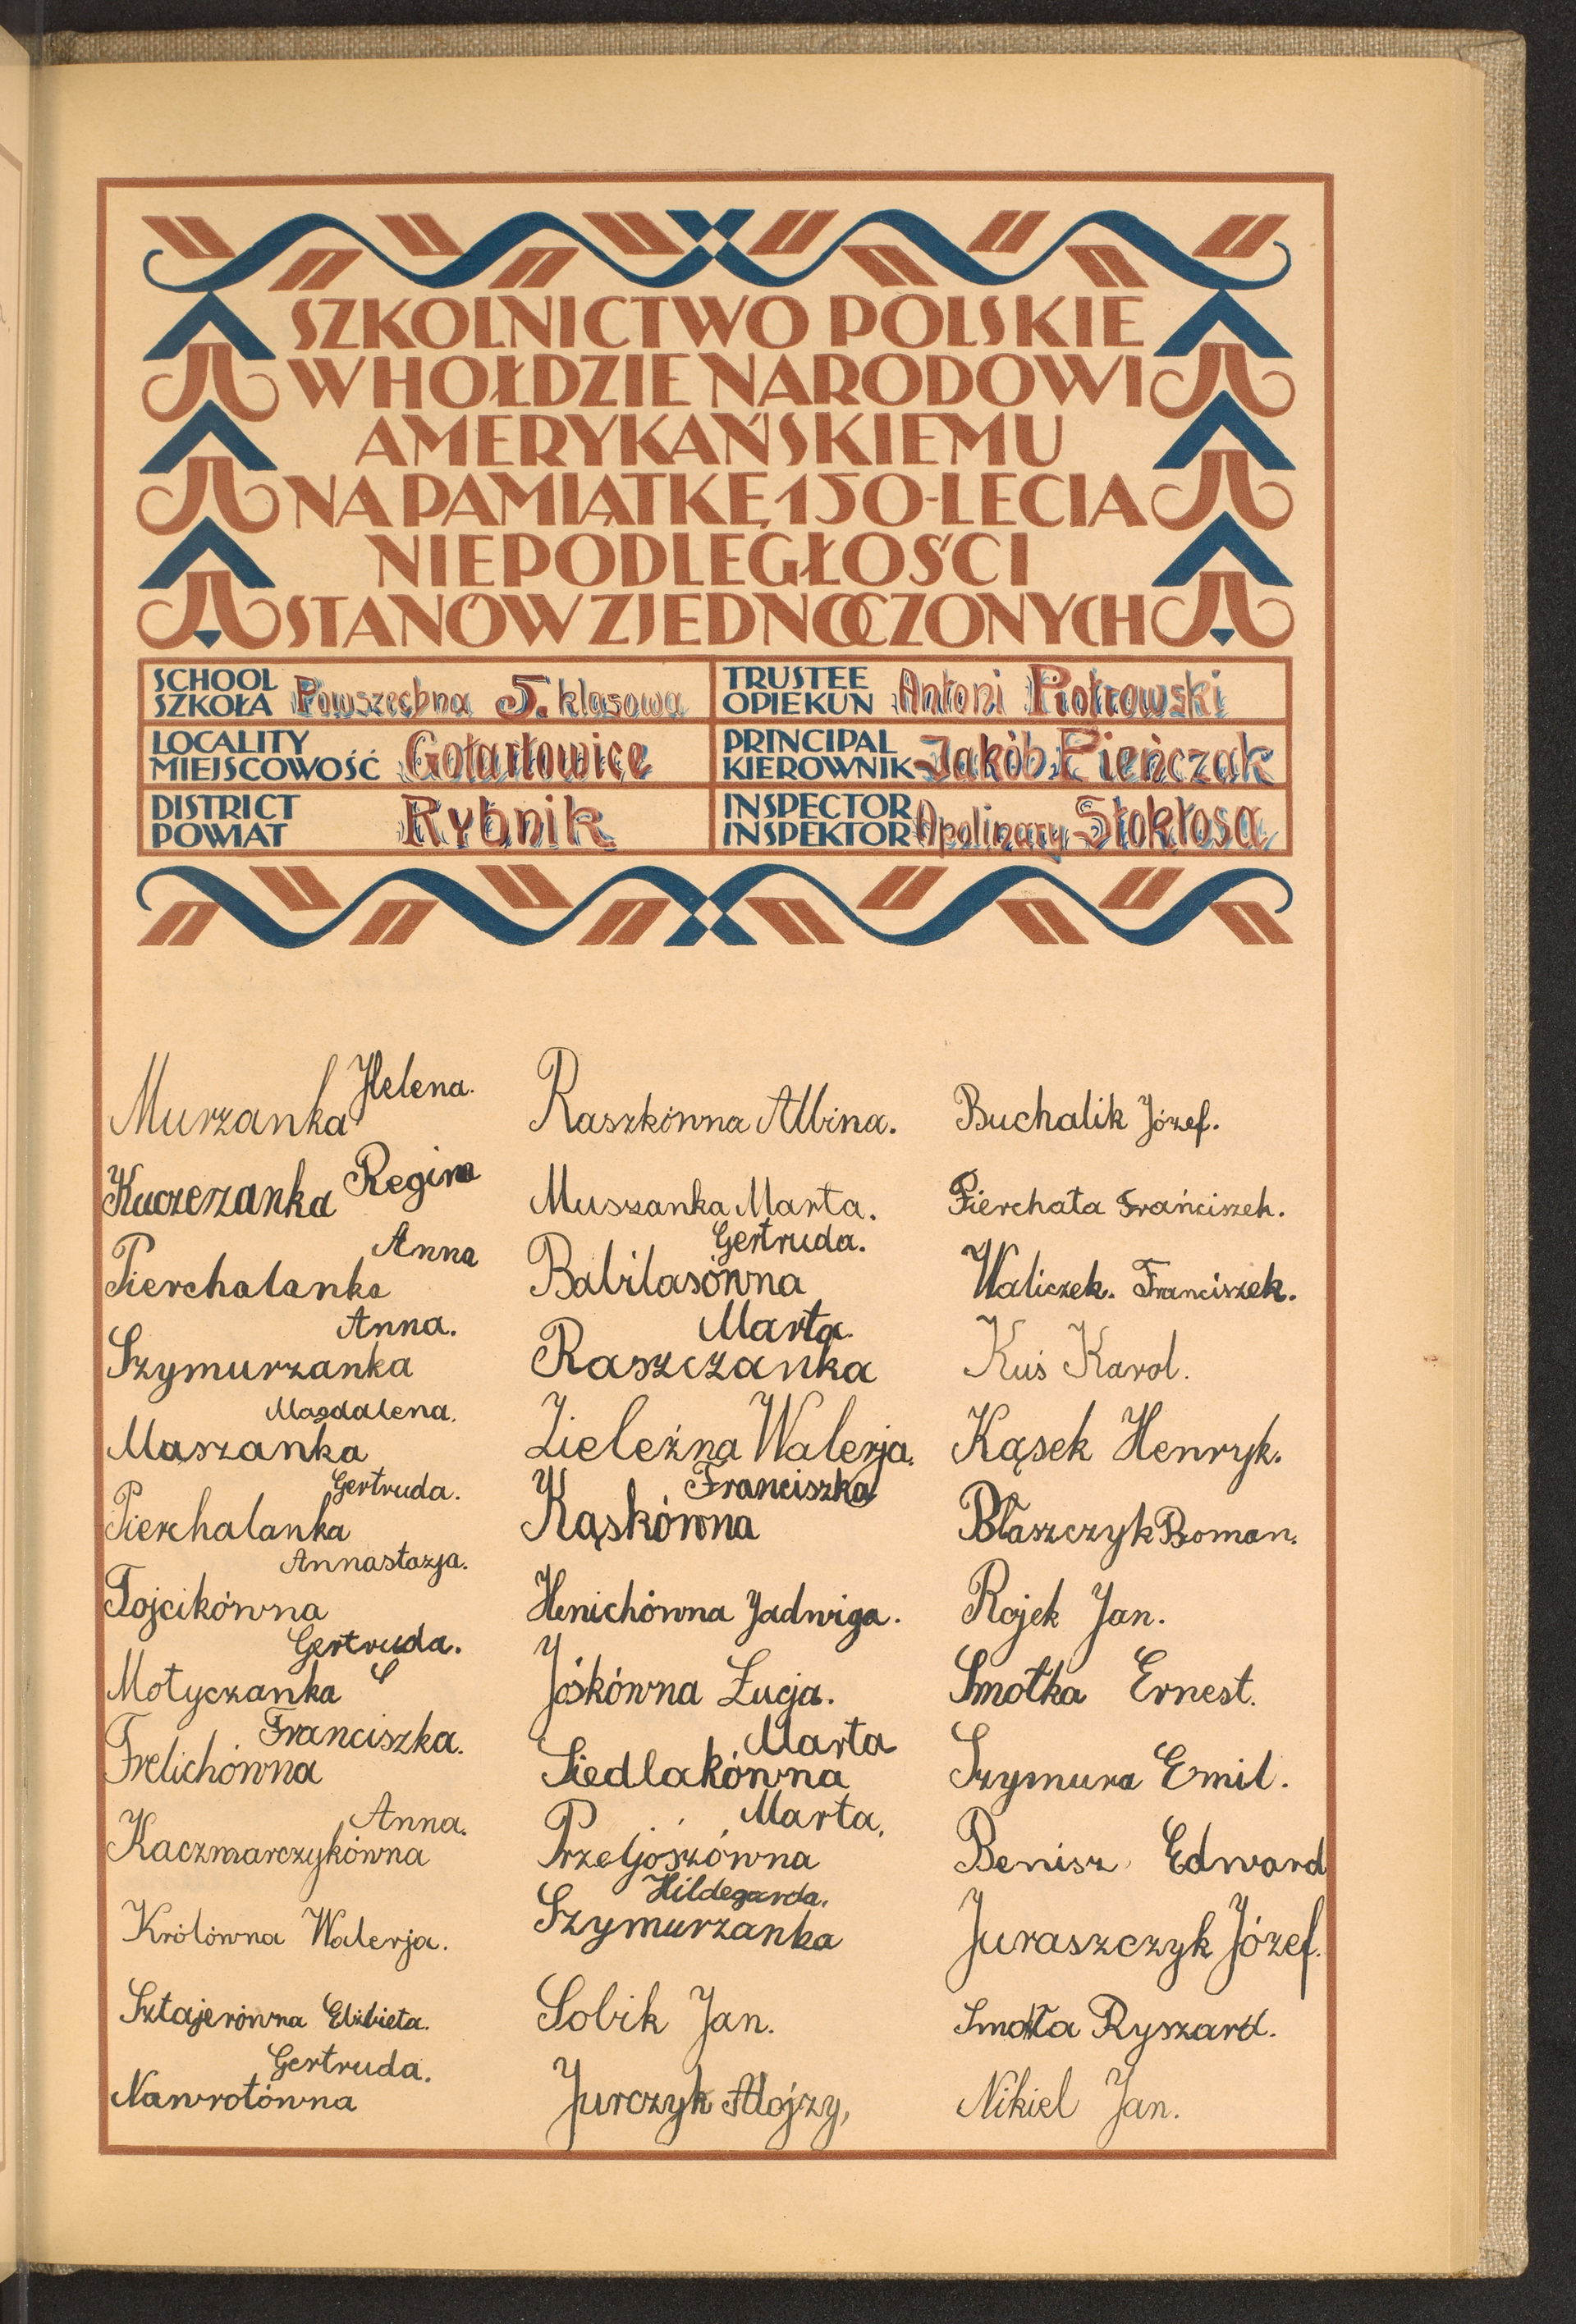 SZKOLNICTWO POLSKIE
W HOŁDZIE NARODOWI
AMERYKAŃSKIEMU
NA PAMIĄTKĘ 150-LECIA
NIEPODLEGŁOŚCI
STANÓW ZJEDNOCZONYCH
SCHOOL
SZKOŁA Powszechna 5. klasowa
LOCALITY
MIEJSCOWOŚĆ Gotartowice
DISTRICT
POWIAT Rybnik
TRUSTEE
OPIEKUN Antoni Piotrowski
PRINCIPAL
KIEROWNIK Jakób Pieńczak
INSPECTOR
INSPEKTOR Apolinary Stokłosa
Murzanka Helena.
Kuczerzanka Regina
Pierchalanka Anna
Szymurzanka Anna.
Maszanka Magdalena.
Pierchalanka Gertruda.
Tojcikówna Annastazja.
Motyczanka Gertruda.
Frelichówna Franciszka.
Kaczmarczykówna Anna.
Królówna Walerja.
Sztajerówna Elżbieta.
Nawrotówna Gertruda.
Raszkówna Albina.
Muszanka Marta.
Babilasówna Gertruda.
Raszczanka Marta.
Zieleźna Walerja.
Kąskówna Franciszka
Henichówna Jadwiga.
Jośkówna Łucja.
Siedlakówna Marta
Marta.
Szymurzanka Hildegarda.
Sobik Jan.
Jurczyk Alojzy,
Buchalik Józef.
Pierchała Frańciszek.
Waliczek. Franciszek.
Kuś Karol.
Kąsek Henryk.
Błaszczyk Roman.
Rojek Jan.
Smołka Ernest.
Szymura Emil.
Benisz Edward
Juraszczyk Józef.
Ryszard.
Nikiel Jan.